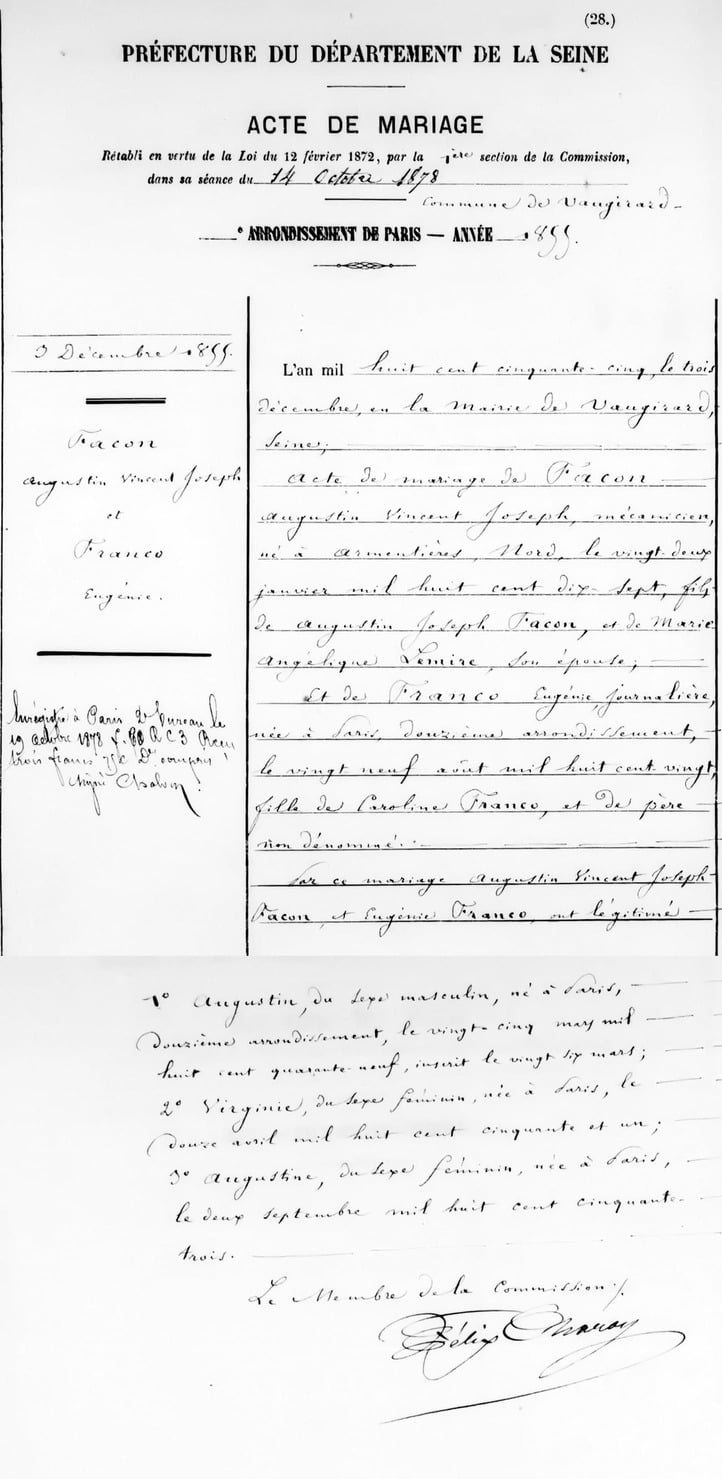 (28.)
PRÉFECTURE DU DÉPARTEMENT DE LA SEINE
ACTE DE MARIAGE
Rétabli en vertu de la Loi du 12 février 1872, par la 1ère section de la Commission,
dans sa séance du 14 Octobre 1878
Commune de Vaugirard
e ARRONDISSEMENT DE PARIS — ANNÉE 1855.
3 Décembre 1855.
Facon
Augustin Vincent Joseph
et
Franco
Eugénie.
Enregistré à Paris 2e bureau le
19 octobre 1878 f. R C 3 Reçu
trois francs Dmes compris
signé
L'an mil huit cent cinquante-cinq, le trois
décembre, en la Mairie de Vaugirard,
Seine;
Acte de mariage de Facon
Augustin Vincent Joseph, mécanicien,
né à Armentières, Nord, le vingt-deux
janvier mil huit cent dix-sept, fils
de Augustin Joseph Facon, et de Marie
Angélique Lemire, son épouse;
Et de Franco Eugénie, journalière,
née à Paris, douzième arrondissement,
le vingt neuf août mil huit cent vingt,
fille de Caroline Franco, et de père
non dénommé.
Par ce mariage Augustin Vincent Joseph
Facon, et Eugénie Franco, ont légitimé
1° Augustin, du sexe masculin, né à Paris,
douzième arrondissement, le vingt-cinq mars mil
huit cent quarante-neuf, inscrit le vingt six mars;
2° Virginie, du sexe féminin, née à Paris, le
douze avril mil huit cent cinquante et un;
3° Augustine, du sexe féminin, née à Paris,
le deux septembre mil huit cent cinquante-
trois.
Le Membre de la Commission:
Félix